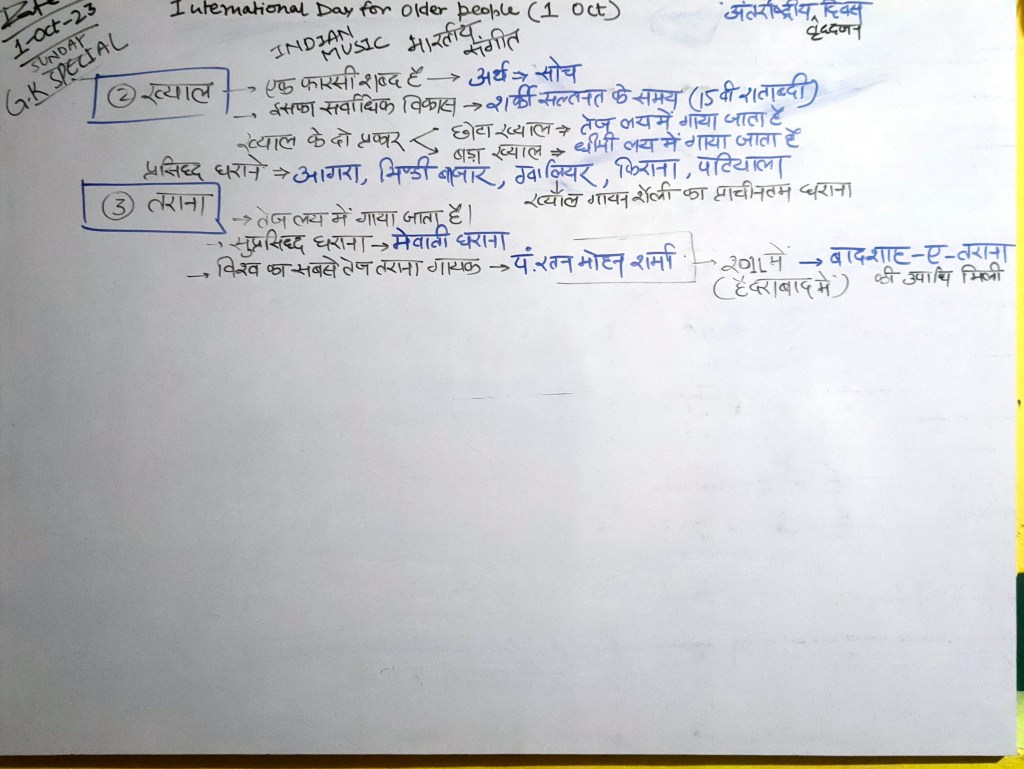 Date
1-Oct-23
SUNDAY
G.K SPECIAL
International Day for older people (1 Oct)
अंतर्राष्ट्रीय दिवस
वृद्धजन
INDIAN MUSIC भारतीय संगीत
② ख्याल → एक फारसी शब्द है → अर्थ ⇒ सोच
→ इसका सर्वाधिक विकास → शर्की सल्तनत के समय (15वी शताब्दी)
ख्याल के दो प्रकार < छोटा ख्याल → तेज लय में गाया जाता है
बड़ा ख्याल → धीमी लय में गाया जाता है
प्रसिद्ध घराने → आगरा, भिण्डी बाजार, ग्वालियर, किराना, पटियाला
ख्याल गायन शैली का प्राचीनतम घराना
③ तराना
→ तेज लय में गाया जाता है।
→ सुप्रसिद्ध घराना → मेवाती घराना
→ विश्व का सबसे तेज तराना गायक → पं. रतन मोहन शर्मा → 2011 में → बादशाह-ए-तराना
(हैदराबाद में) की उपाधि मिली